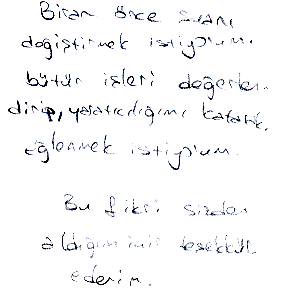 Biran önce sıramı
değiştirmek istiyorum.
bütün işleri değerlen-
dirip, yaratıcılığımı katarak
eğlenmek istiyorum.
Bu fikri sizden
aldığım için teşekkür
ederim.